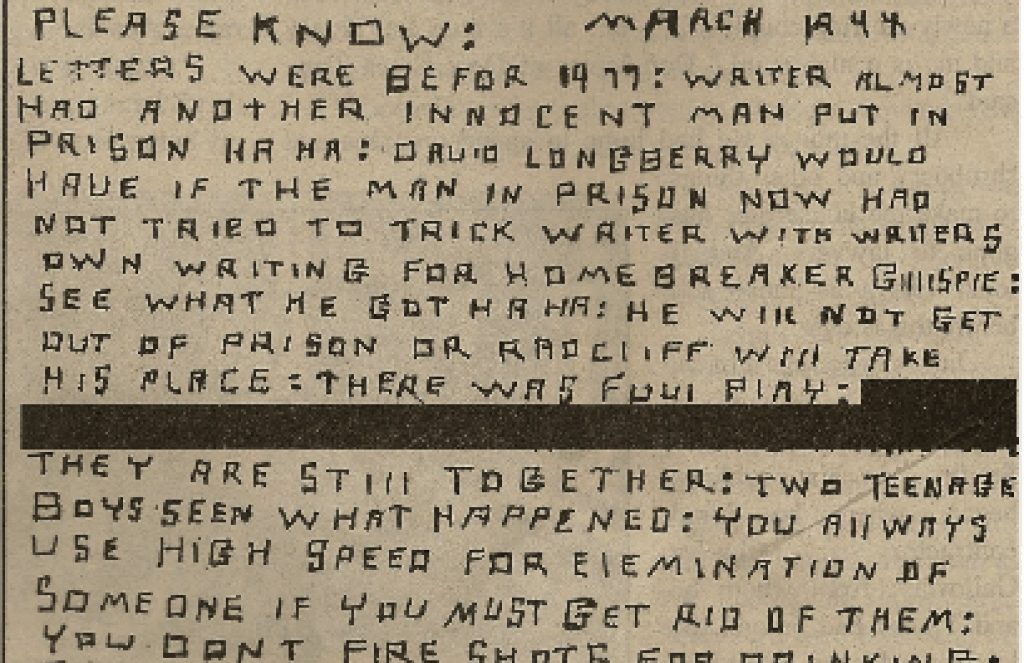 PLEASE KNOW: MARCH 1944
LETTERS WERE BEFOR 1977: WRITER ALMOST
HAD ANOTHER INNOCENT MAN PUT IN
PRISON HA HA: DAVID LONGBERRY WOULD
HAVE IF THE MAN IN PRISON NOW HAD
NOT TRIED TO TRICK WRITER WITH WRITERS
OWN WRITING FOR HOMEBREAKER GIllISPIE:
SEE WHAT HE GOT HA HA: HE WIll NOT GET
OUT OF PRISON OR RADCLIFF WIll TAKE
HIS PLACE: THERE WAS FOUl PlAY:
THEY ARE STIll TOGETHER: TWO TEENAGE
BOYS SEEN WHAT HAPPENED: YOU AllWAYS
USE HIGH SPEED FOR ElEMINATION OF
SOMEONE IF YOU MUST GET RID OF THEM:
YOU DONT FIRE SHOTS FOR DRINKING: